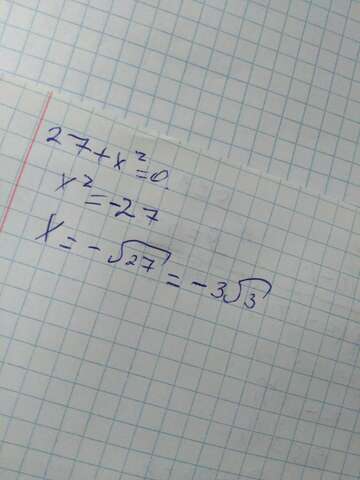 27+x²=0.
x²=-27
X=-√27=-3√3